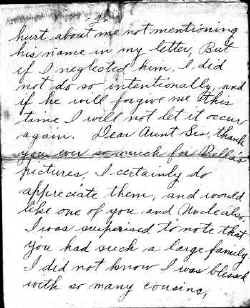 hurt about me not mentioning
his name in my letter, But
if I neglected him I did
not do so intentionally, and
if he will forgive me this
time I will not let it occur
again. Dear Aunt Bev, thank
you ever so much for
pictures, I certainly do
appreciate them, and would
like one of you and Uncle
I was surprised to note that
you had such a large family,
I did not know I was blessed
with so many cousins,